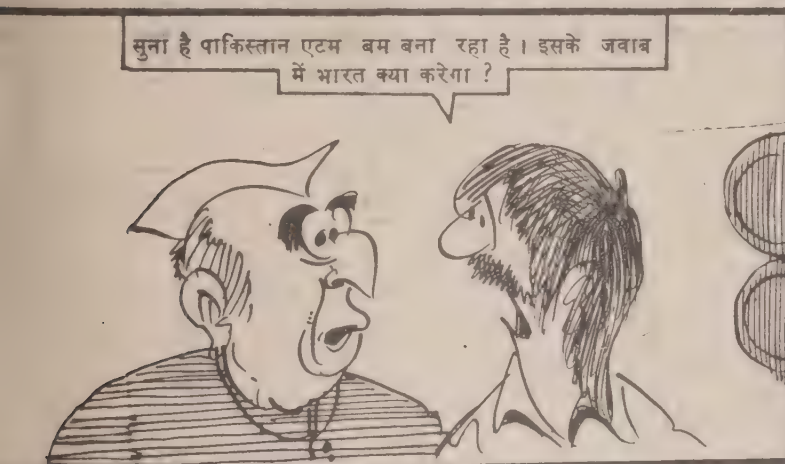 सुना है पाकिस्तान एटम बम बना रहा है । इसके जवाब
में भारत क्या करेगा ?